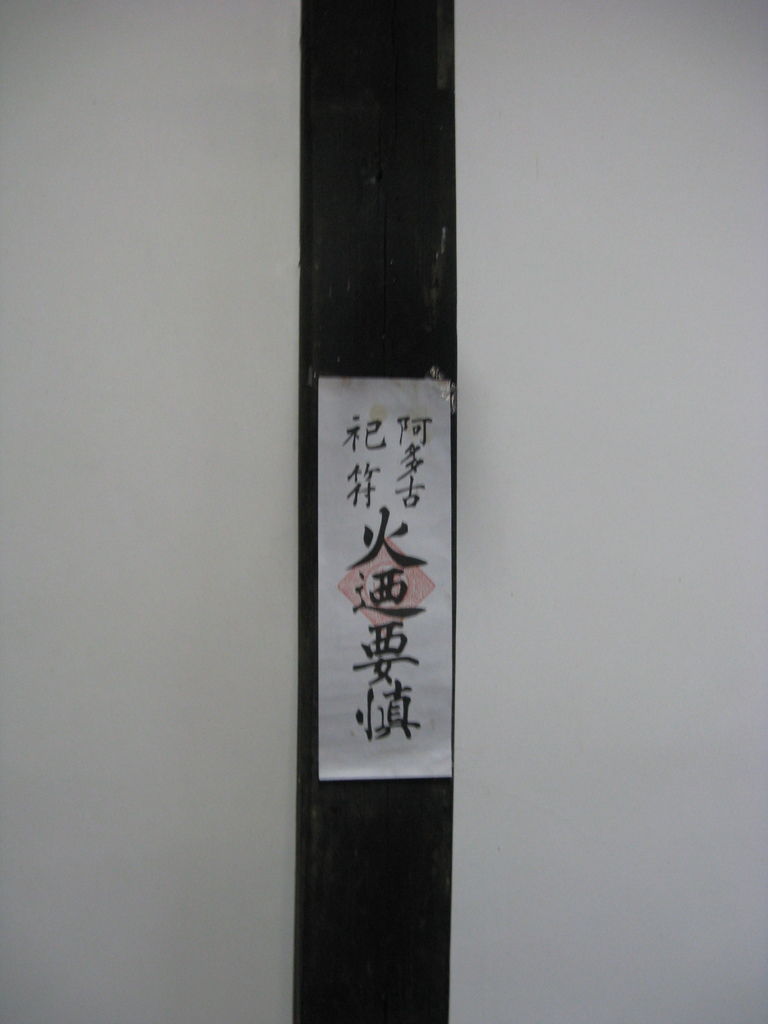 阿多古
祀符
火廼要慎